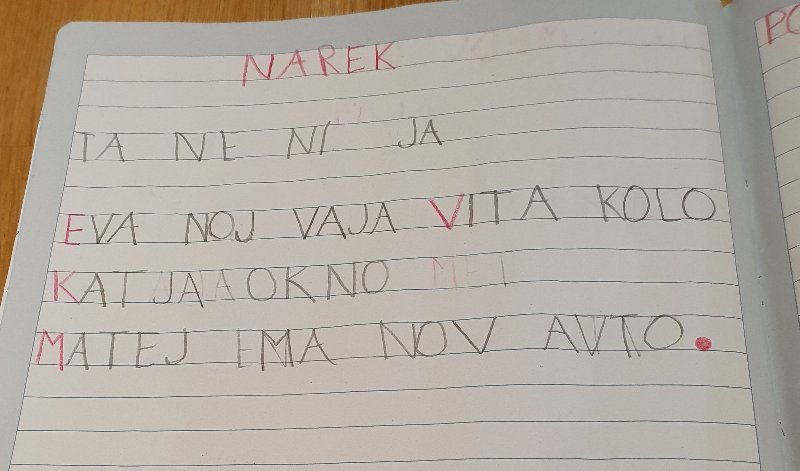 NAREK
TA NE NI JA
EVA NOJ VAJA VITA KOLO
KATJA OKNO
MATEJ IMA NOV AVTO.
PO